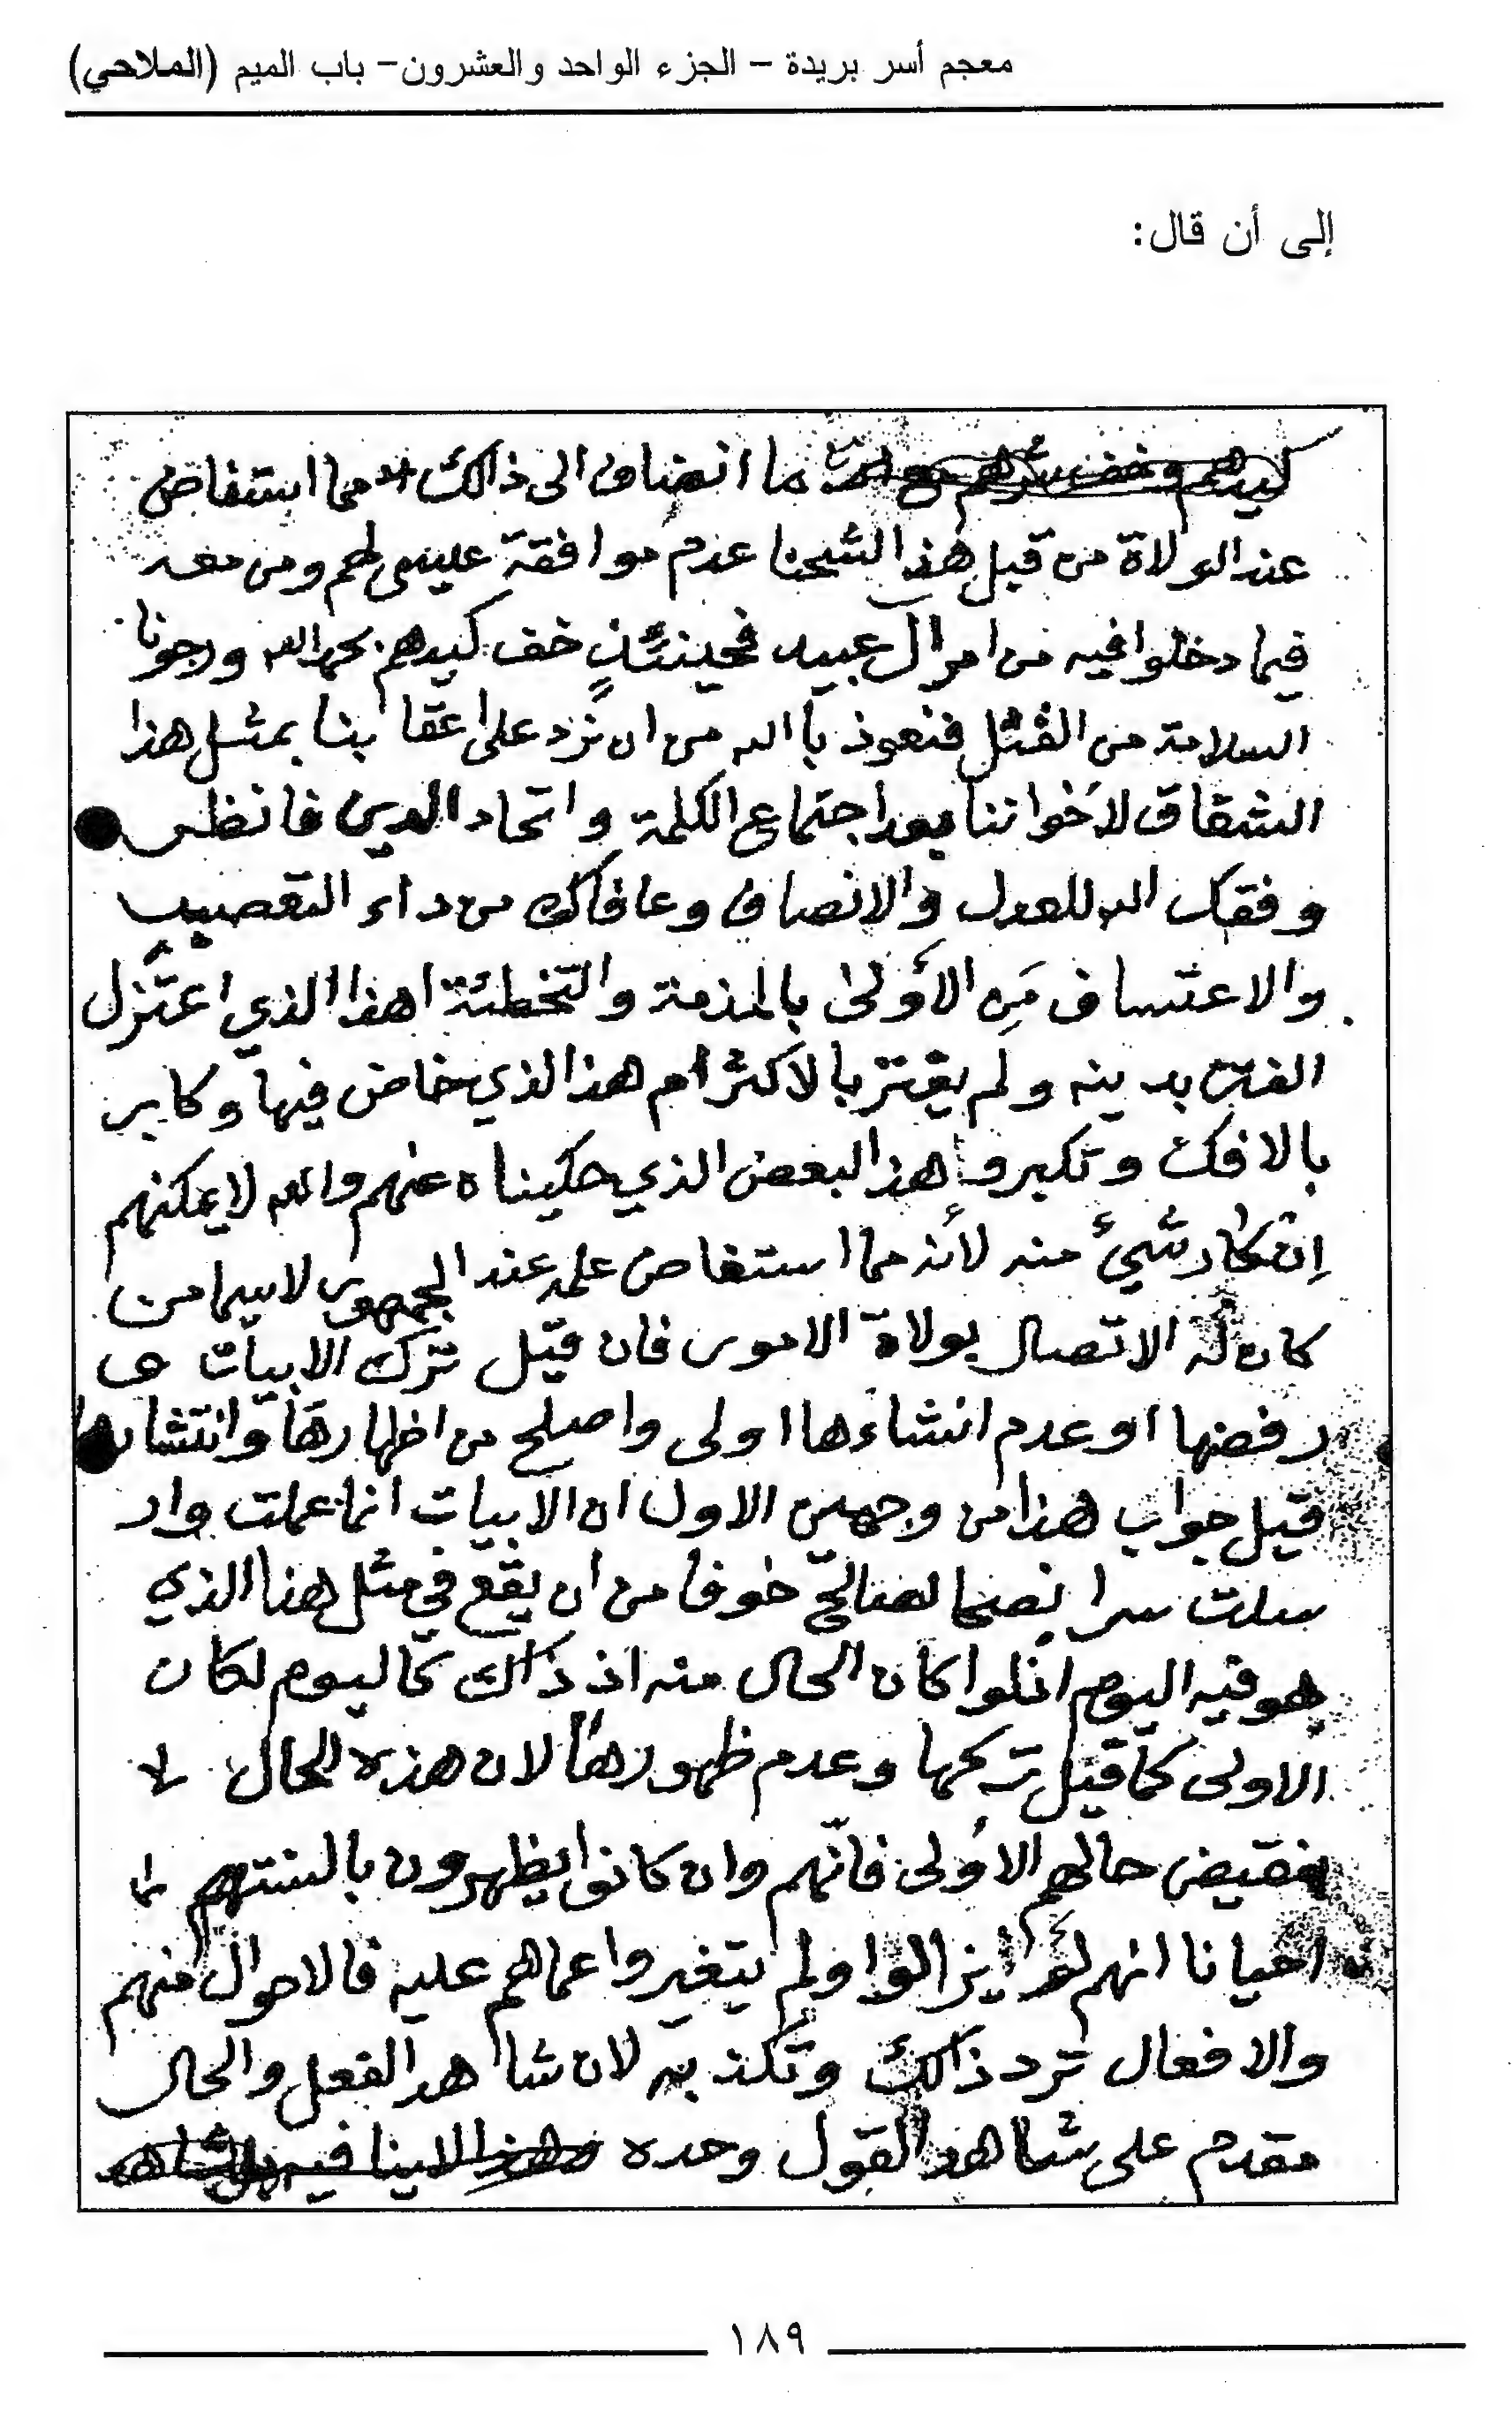 معجم أسر بريدة – الجزء الواحد والعشرون– باب الميم (الملاحي)
إلى أن قال:
ما انضاف الى ذالك مما استفاض
عند الولاة من قبل هذا الشحنا عدم موافقة عيسى لهم ومن معه
فيما دخلوا فيه من امر ال عبيد فحينئذٍ خف كيدهم بحمد الله ورجونا
السلامة من الفتل فنعوذ باالله من ان نرد على اعقابنا بمثل هذا
الشقاق لأخواننا بعد اجتماع الكلمة واتحاد الدين فانظر
وفقك الله للعدل والانصاف وعافاك من داء التعصيب
والاعتساف مَن الأَولى بالمذمة والتخطئة اهذا الذي اعتزل
الفتن بدينه ولم يغتر بالاكثر ام هذا الذي خاض فيها وكابر
بالافك وتكبر وهذا البعض الذي حكيناه عنهم والله لا يمكنهم
إنكار شيءٍ منه لأنه مما استفاض علمه عند الجمهور لاسيما من
كان له الاتصال بولاة الامور فان قيل ترك الابيات و
رفضها او عدم انشاءها اولى واصلح من اظهارها وانتشارها
قيل جواب هذا من وجهين الاول ان الابيات انما عملت وار
سلت سرا نصحا لصالح خوفا من ان يقع في مثل هذا الذي
هو فيه اليوم اذ لوا كان الحال منه اذ ذاك كاليوم لكان
الاولى كما قيل تركها وعدم ظهورها لان هذه الحال لا
نقيض حالهم الأولى فانهم وان كانوا يظهرون بالسنتهم
احيانا انهم لم يزالوا ولم يتغيروا عماهم عليه فالاحوال منهم
والافعال ترد ذالك وتكذبه لان شاهد الفعل والحال
مقدم على شاهد القول وحده وهذا لا ينافيه
١٨٩